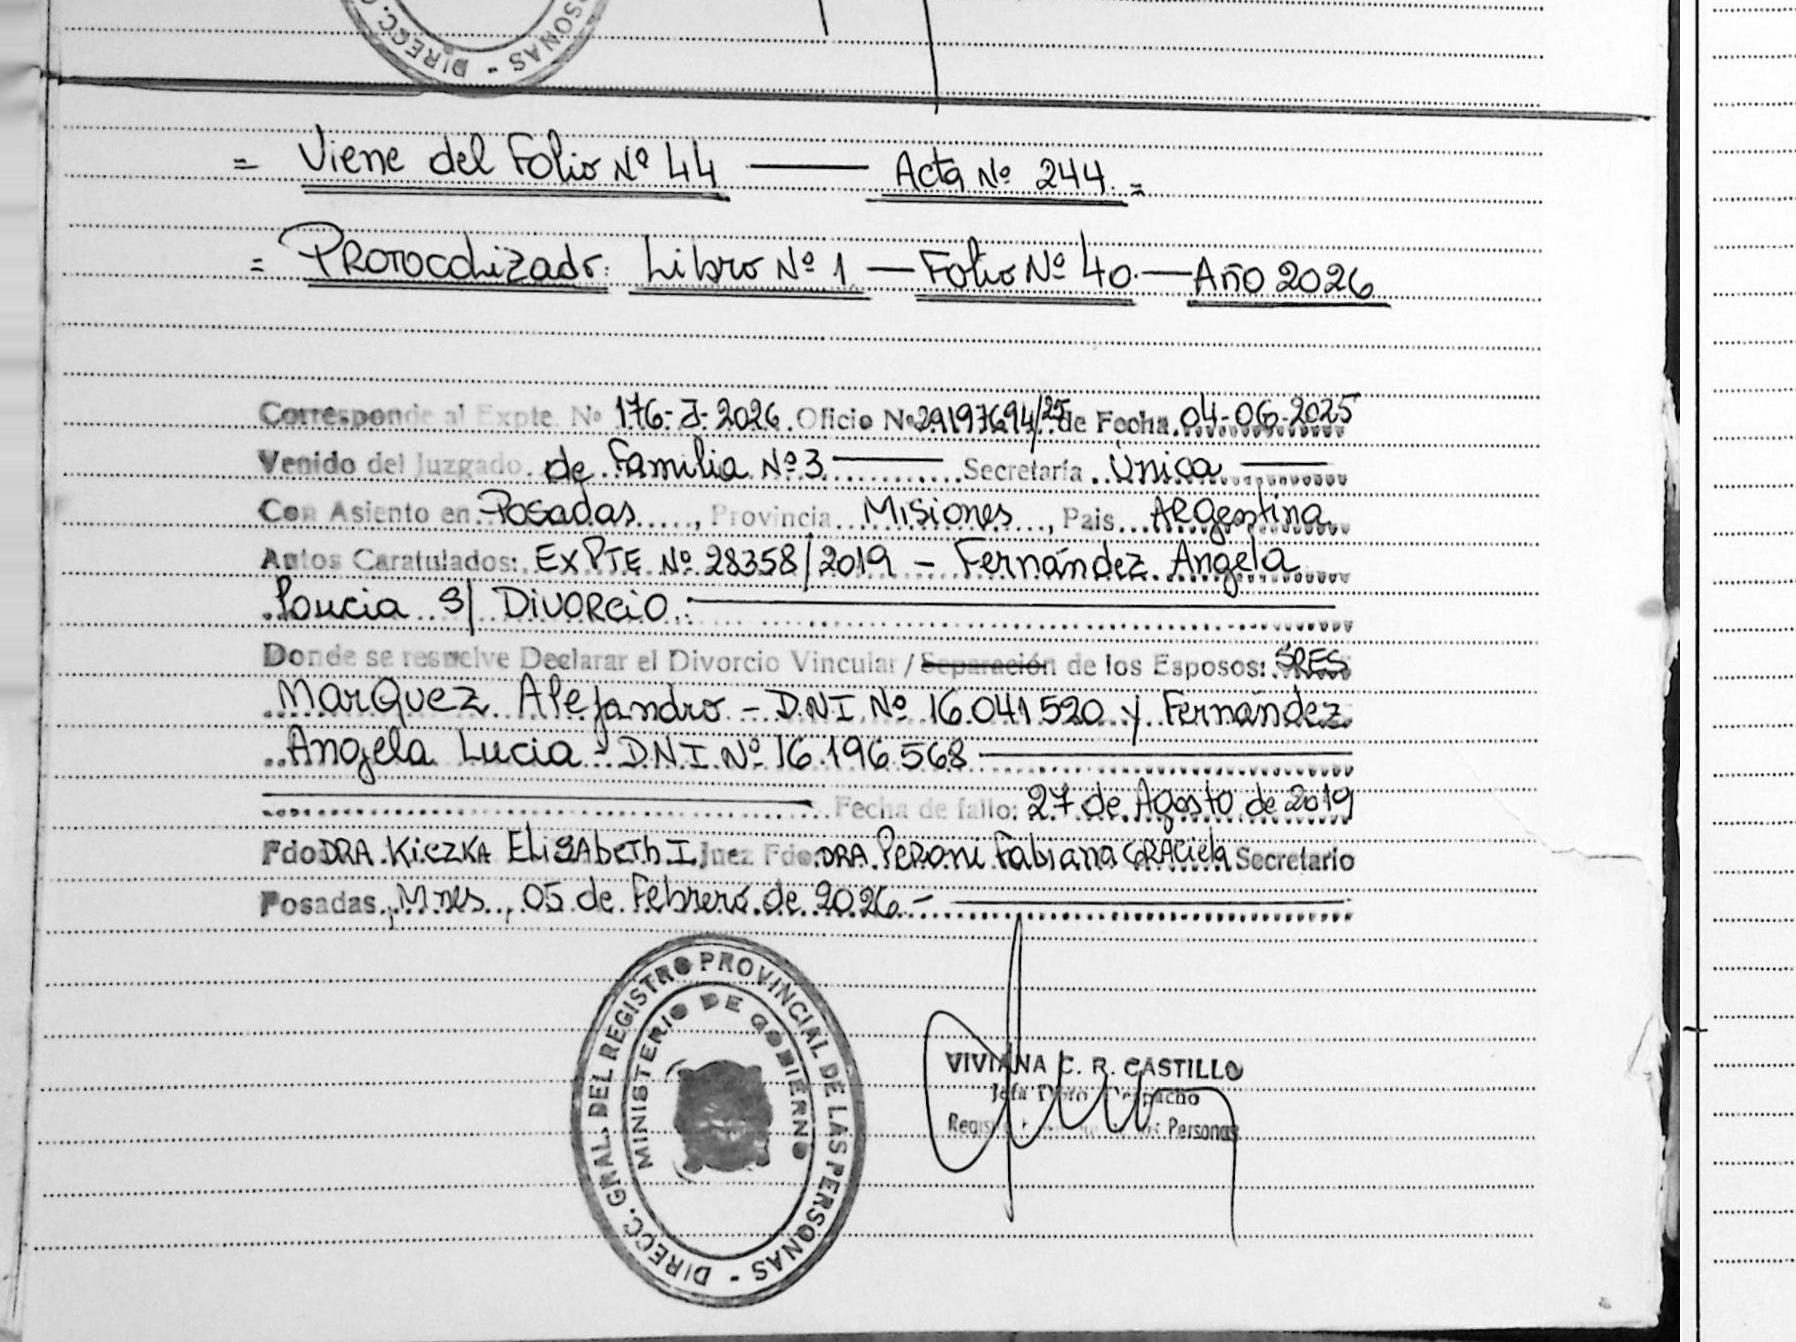 DIRECC. PERSONAS -
= Viene del Folio Nº 44 —— Acta Nº 244. =
= Protocolizado: Libro Nº 1 — Folio Nº 40. — Año 2026
Corresponde al Expte. Nº 176-J-2026. Oficio Nº 29197694/25 de Fecha 04-06-2025
Venido del Juzgado de Familia Nº 3 —— Secretaría Única ——
Con Asiento en Posadas, Provincia Misiones, Pais Argentina
Autos Caratulados: EXPTE Nº 28358/2019 – Fernández Angela
Loucia S/ DIVORCIO.:——
Donde se resuelve Declarar el Divorcio Vincular / Separación de los Esposos: SRES
MarQuez Alejandro – D.N.I. Nº 16.041.520 y Fernández
Angela Lucia – D.N.I. Nº 16.196.568 ——
—— Fecha de fallo: 27 de Agosto de 2019
Fdo DRA. Kiczka Elisabeth I. Juez Fdo. DRA. Peroni Fabiana Graciela Secretario
Posadas, Mnes, 05 de Febrero de 2026.– ——
DIRECC. GRAL. DEL REGISTRO PROVINCIAL DE LAS PERSONAS -
MINISTERIO DE GOBIERNO
VIVIANA C. R. CASTILLO
Jefa Dpto Despacho
Personas